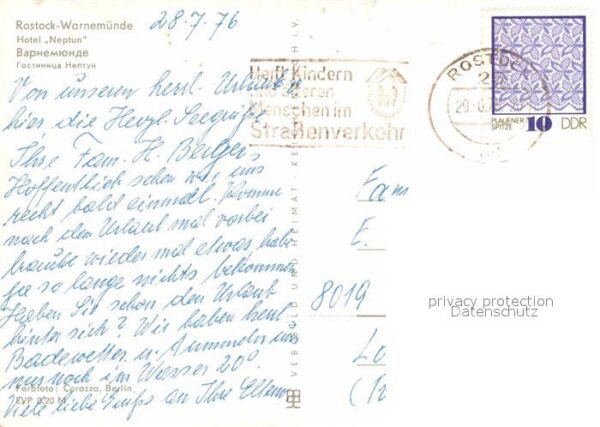 Rostock-Warnemünde
Hotel „Neptun"
Варнемюнде
Гостиница Нептун
28.7.76
Von unserem herrl. Urlaub
hier die Herzl. Seegrüße
Ihre Fam. H. Berger,
Hoffentlich sehen wir uns
recht bald einmal. Komme
nach dem Urlaub mal vorbei
brauche wieder mal etwas, habe
ja so lange nichts bekommen
Haben Sie schon den Urlaub
hinter sich? Wir haben herrl.
Badewetter u. tummeln uns
nur noch im Wasser 20°
Viele liebe Grüße an Ihre Eltern
Farbfoto: Corazza, Berlin
EVP 0,20 M
VEB BILD UND HEIMAT REI
H I, V
Helft Kindern
älteren
Menschen im
Straßenverkehr
ROSTOCK
PLAUENER
SPITZE
10 DDR
Fam
E.
8019
privacy protection
Datenschutz